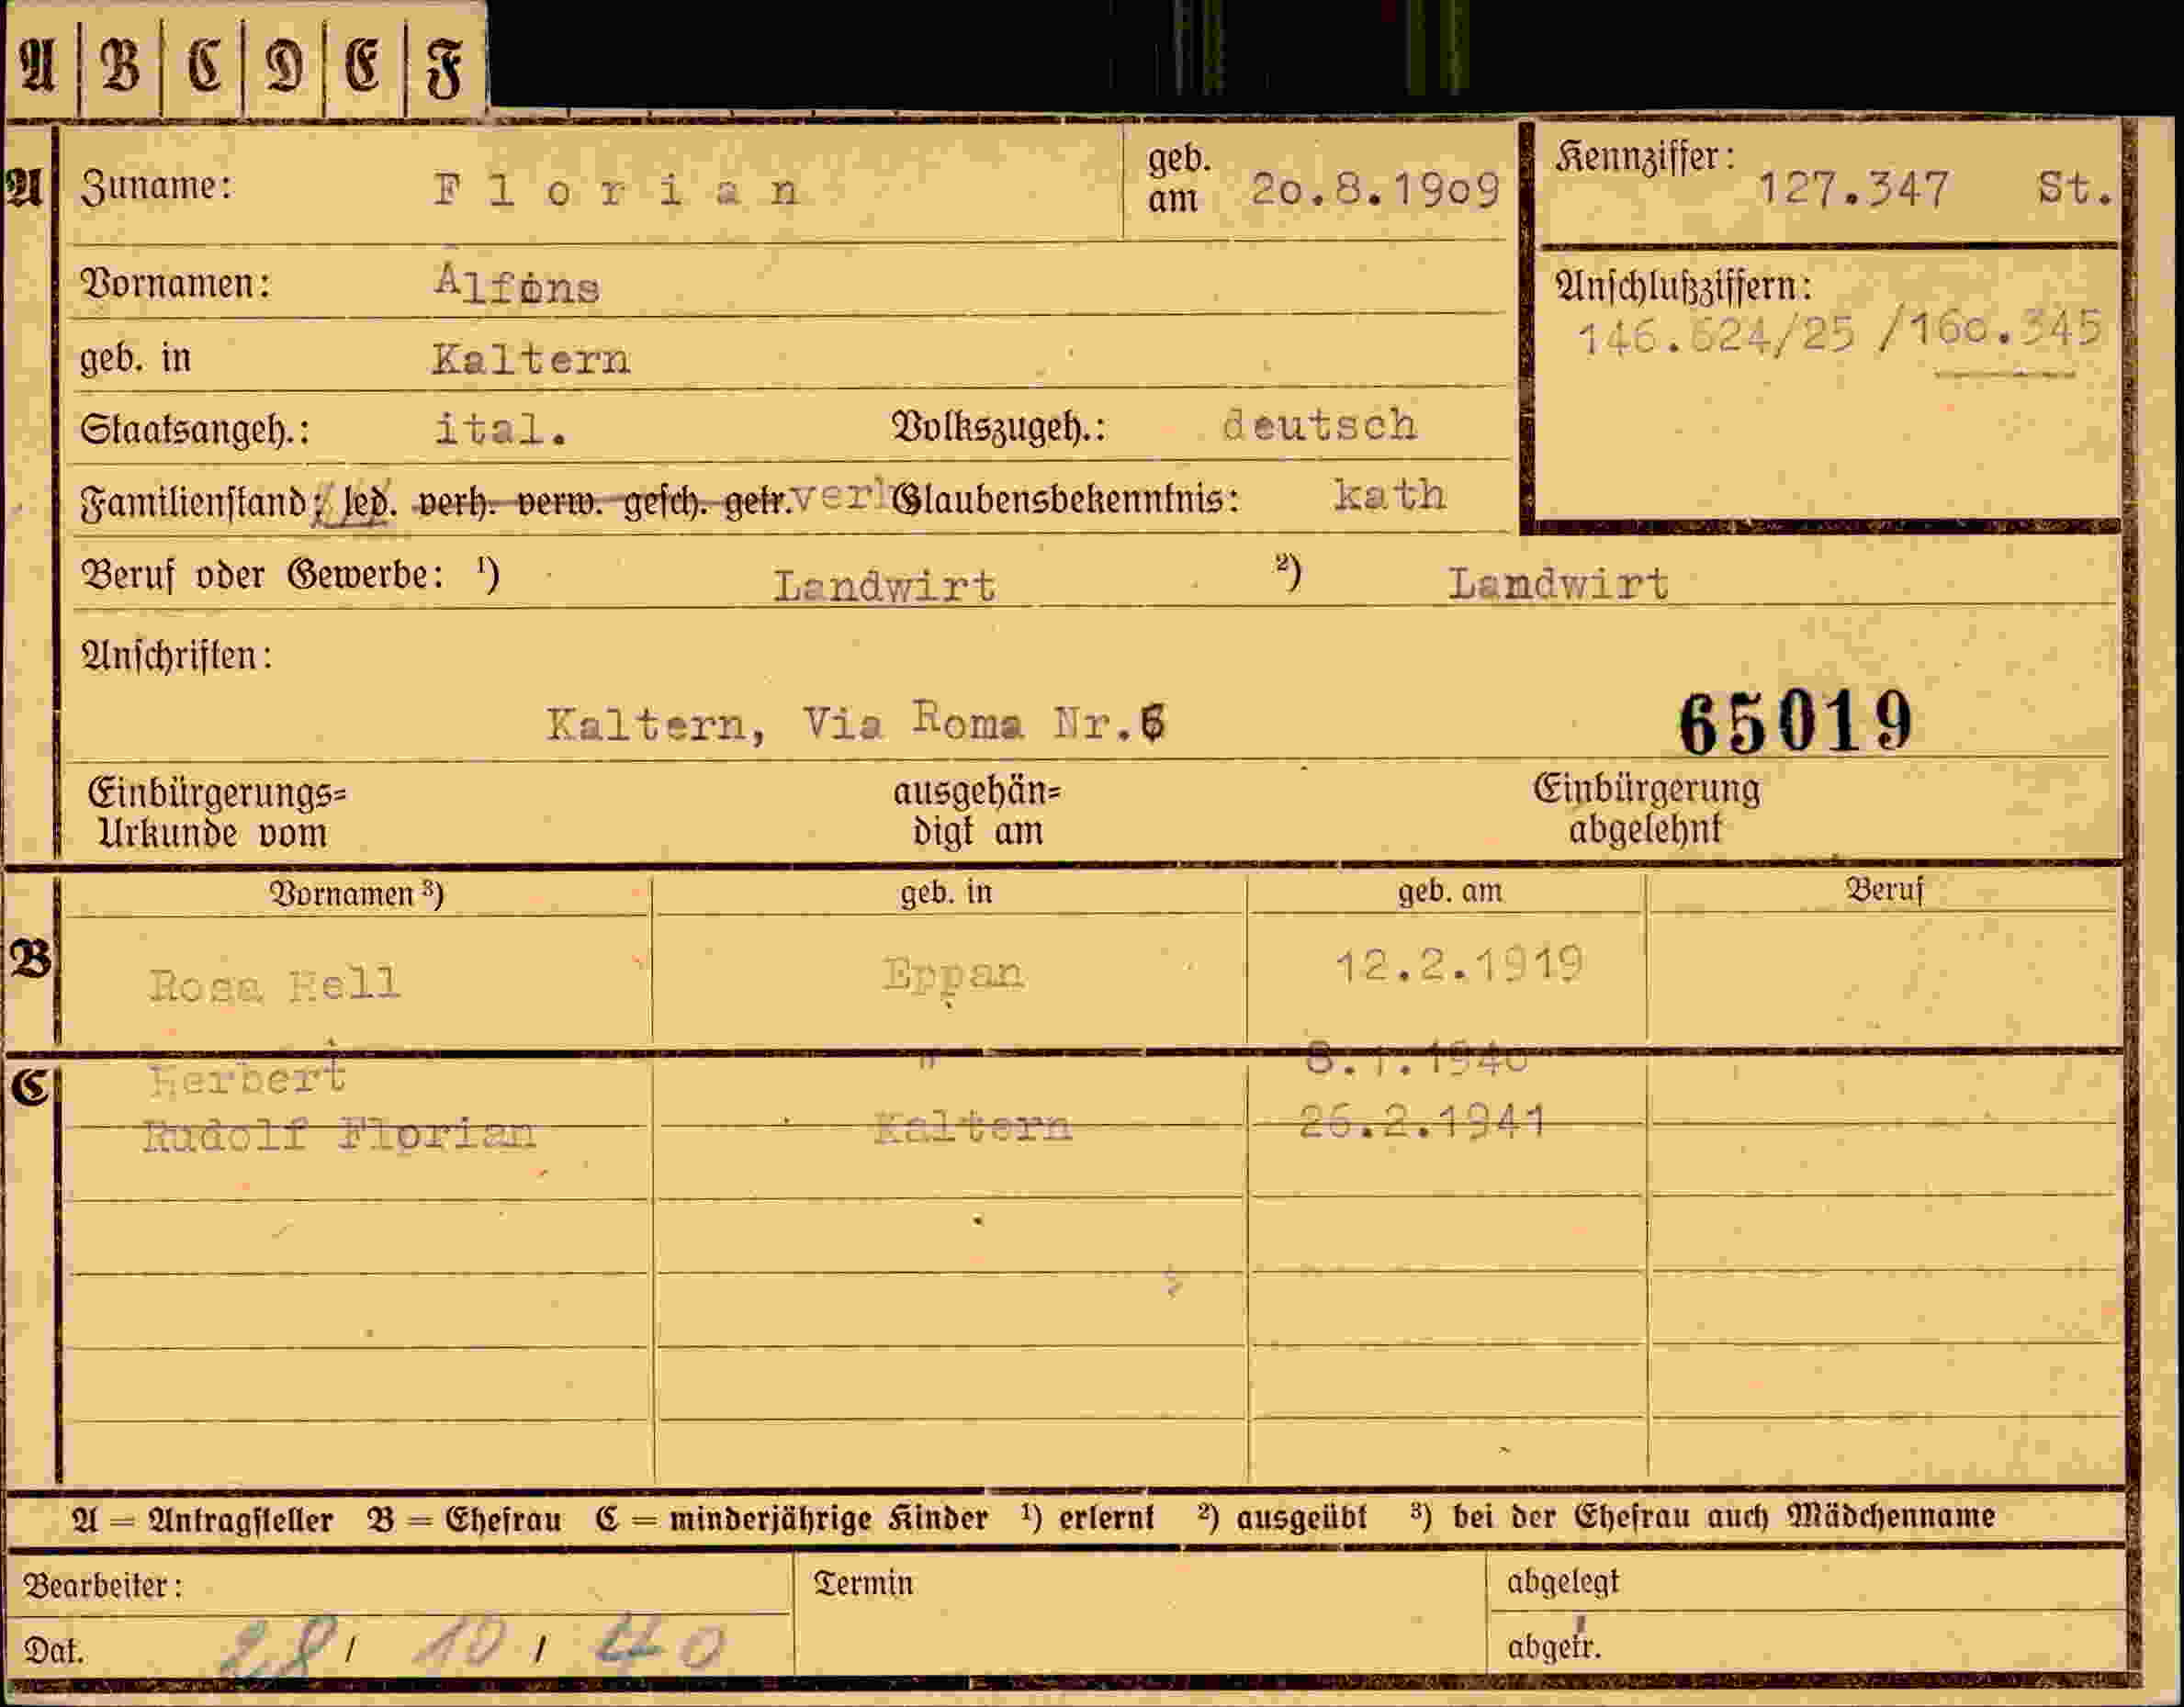 A | B | C | D | E | F
A Zuname: Florian geb. am 20.8.1909 Kennziffer: 127.347 St.
Vornamen: Alfons Anschlußziffern:
geb. in Kaltern 146.624/25 /160.345
Staatsangeh.: ital. Volkszugeh.: deutsch
Familienstand: led. verh. verw. gesch. getr. verh Glaubensbekenntnis: kath
Beruf oder Gewerbe: ¹) Landwirt ²) Landwirt
Anschriften:
Kaltern, Via Roma Nr.6 65019
Einbürgerungs= ausgehän= Einbürgerung
Urkunde vom digt am abgelehnt
Vornamen ³) geb. in geb. am Beruf
B Rosa Hell Eppan 12.2.1919
C Herbert " 8.1.1940
Rudolf Florian Kaltern 26.2.1941
A = Antragsteller B = Ehefrau C = minderjährige Kinder ¹) erlernt ²) ausgeübt ³) bei der Ehefrau auch Mädchenname
Bearbeiter: Termin abgelegt
Dat. 28 / 10 / 40 abgetr.